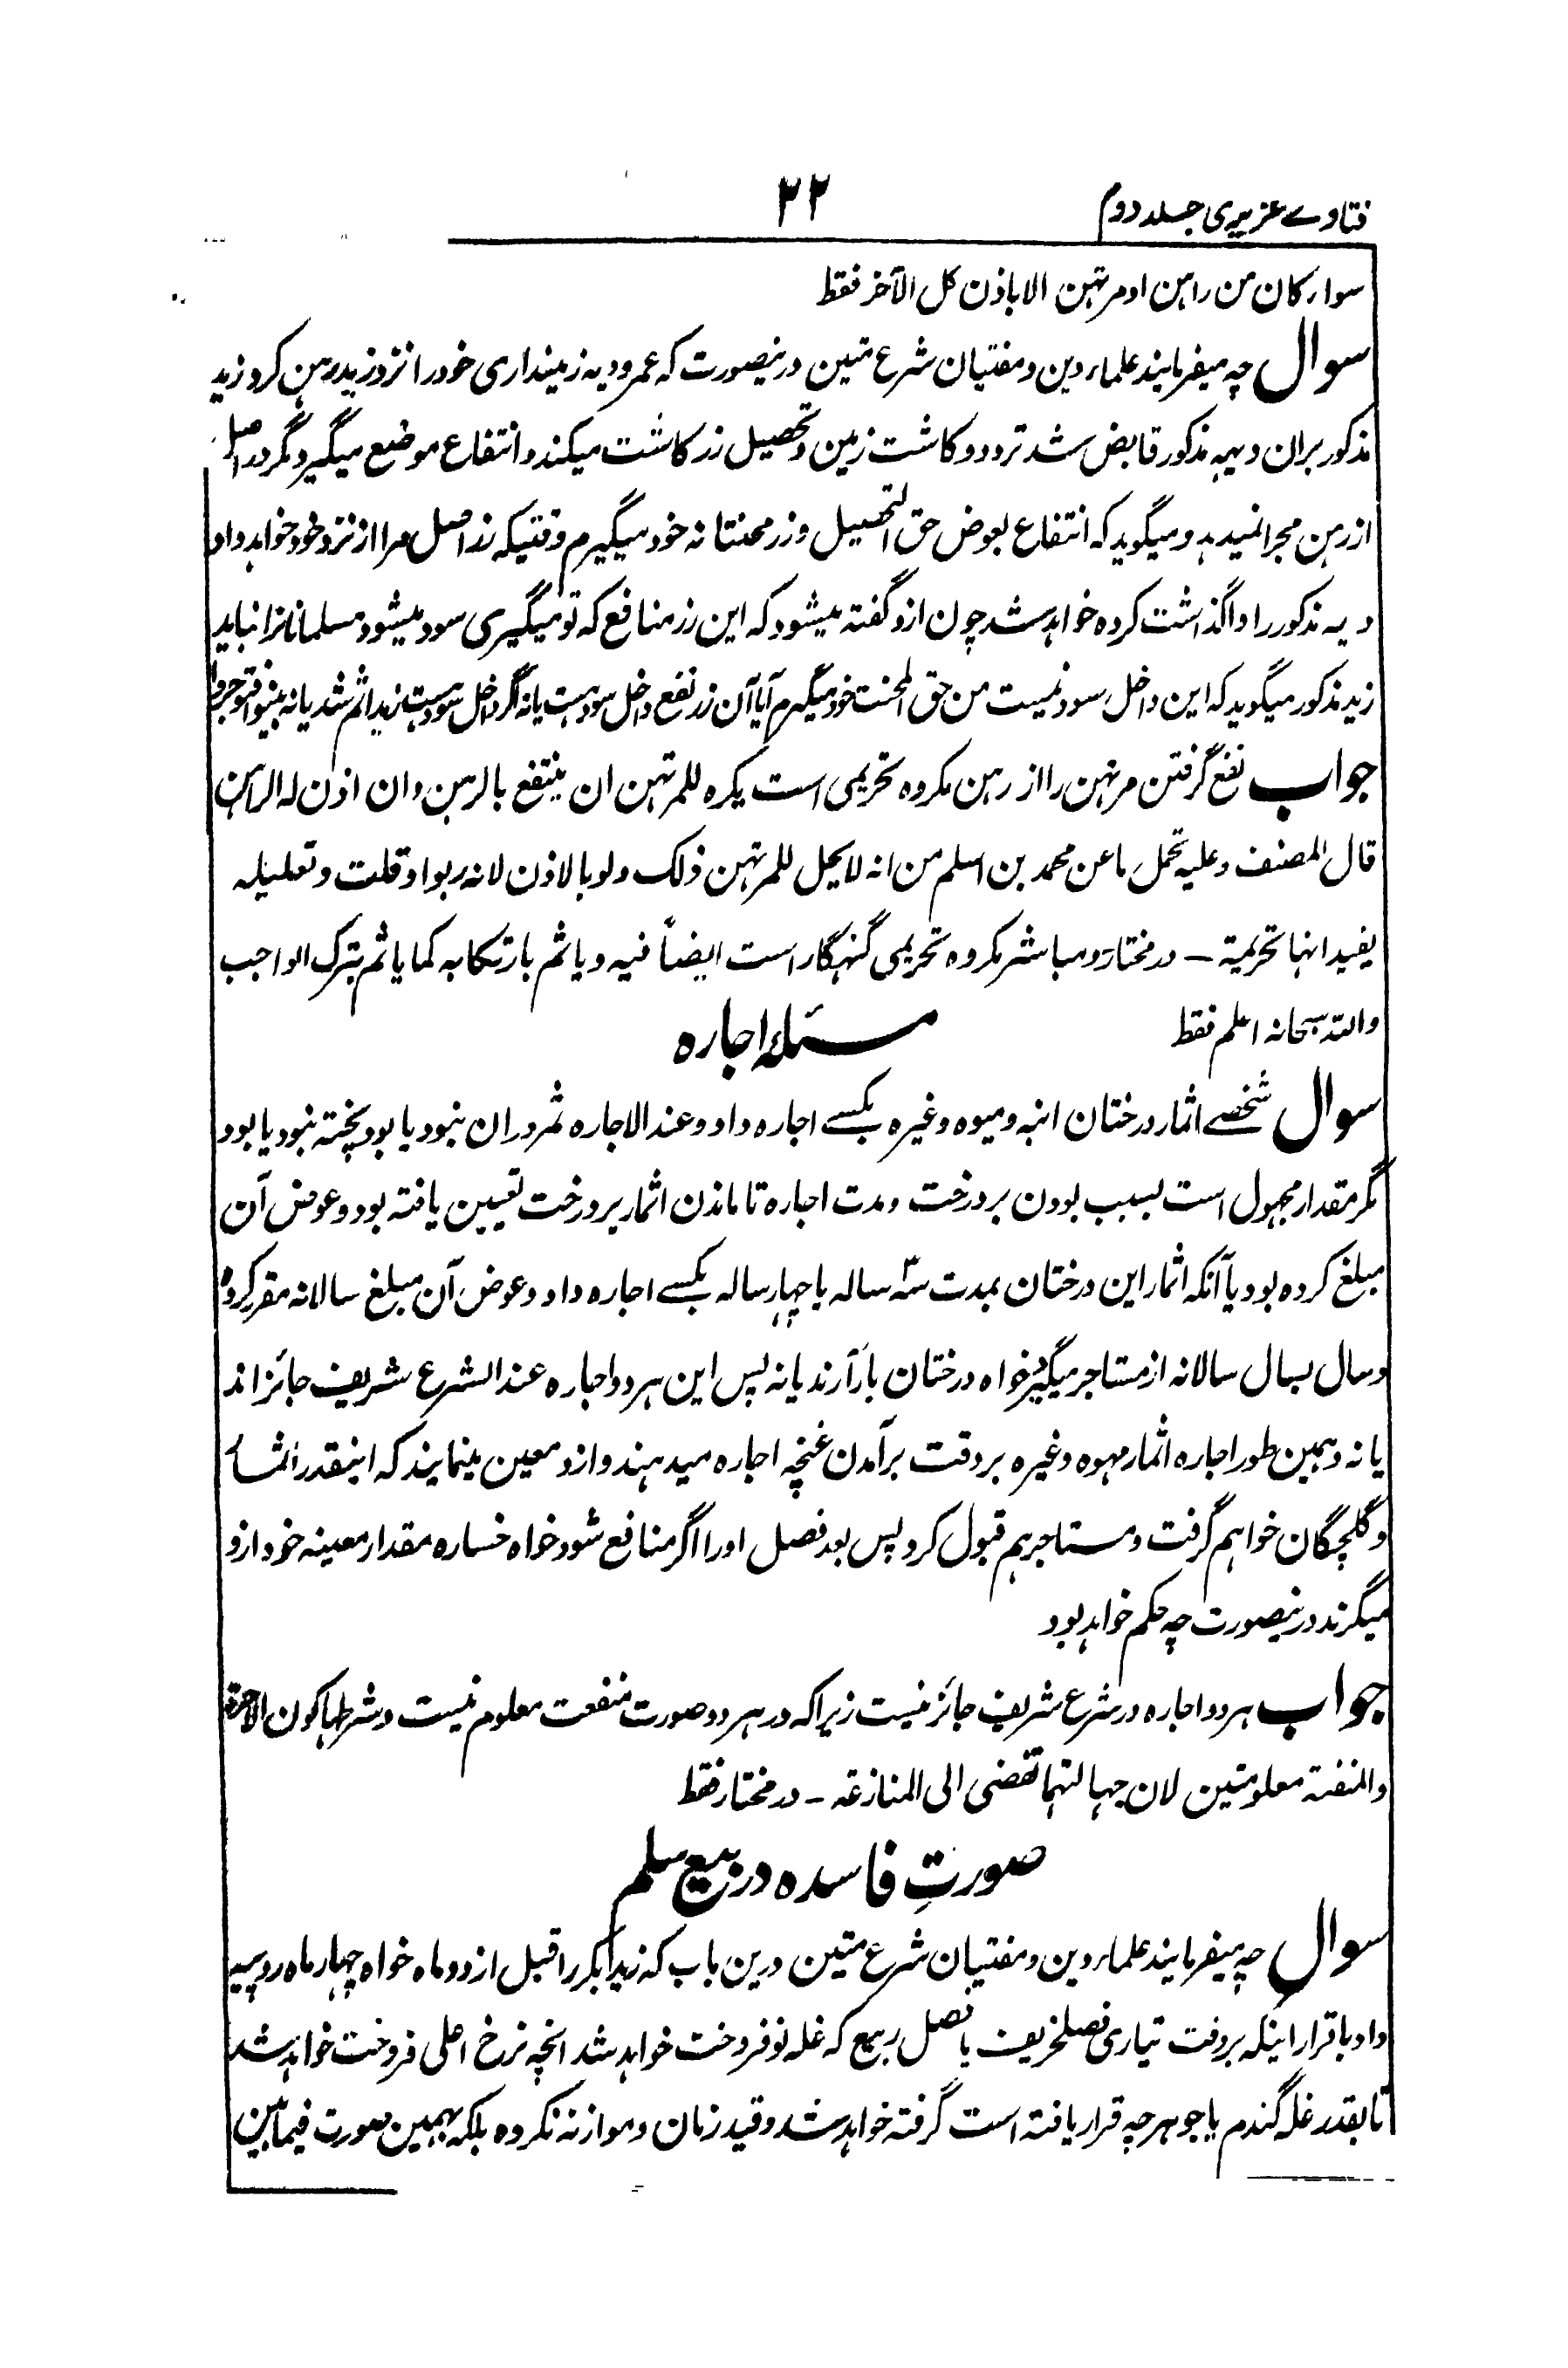 فتاوے عزیزی جلد دوم
۲۲
سواء کان من راہن او مرتہن الا باذن کل الآخر فقط
سوال چہ میفرمایند علماء دین و مفتیان شرع متین درینصورت کہ عمرو دیہ زمینداری خود را نزد زید رہن کرد زید
مذکور بران دیہہ مذکور قابض شد تردد و کاشت زمین و تحصیل زر کاشت میکند و انتفاع موضع میگیرد مگر در اصل
از رہن مجرا نمیدہد و میگوید کہ انتفاع بعوض حق التحصیل و زر محنتانہ خود میگیرم وقتیکہ زر اصل مرا از نزد خود خواہد داد
دیہ مذکور را واگذاشت کردہ خواہد شد چون ازو گفتہ میشود کہ این زر منافع کہ تو میگیری سود میشود مسلمانانرا نباید
زید مذکور میگوید کہ این داخل سود نیست من حق المحنت خود میگیرم آیا آن زر نفع داخل سود ہست یا نہ اگر داخل سود ہست زید آثم شد یا نہ بینوا توجروا
جواب نفع گرفتن مرتہن را از رہن مکروہ تحریمی است یکرہ للمرتہن ان ینتفع بالرہن و ان اذن لہ الراہن
قال المصنف و علیہ تحمل ما عن محمد بن اسلم من انہ لا یحل للمرتہن ذلک ولو بالاذن لانہ ربوا و قلت و تعلیلہ
یفید انہا تحریمۃ ــ درمختار و مباشر مکروہ تحریمی گنہگار است ایضاً فیہ و یاثم بارتکابہ کما یاثم بترک الواجب
واللہ سبحانہ اعلم فقط
مسئلہ اجارہ
سوال شخصے اثمار درختان انبہ و میوہ وغیرہ بکسے اجارہ داد و عند الاجارہ ثمر دران نبود یا بود پختہ نبود یا بود
مگر مقدار مجہول است بسبب بودن بر درخت و مدت اجارہ تا ماندن اثمار بر درخت تعیین یافتہ بود و عوض آن
مبلغ کردہ بود یا آنکہ اثمار این درختان بمدت سہ سالہ یا چہار سالہ بکسے اجارہ داد و عوض آن مبلغ سالانہ مقرر کردہ
و سال بسال سالانہ از مستاجر میگیرد خواہ درختان بار آرند یا نہ پس این ہر دو اجارہ عند الشرع شریف جائز اند
یا نہ و ہمین طور اجارہ اثمار مہوہ وغیرہ بر وقت برآمدن غنچہ اجارہ میدہند و ازو معین مینمایند کہ اینقدر اثمار
و گلچگان خواہم گرفت و مستاجر ہم قبول کرد پس بعد فصل او را اگر منافع شود خواہ خسارہ مقدار معینہ خود ازو
میگیرند درینصورت چہ حکم خواہد بود
جواب ہر دو اجارہ در شرع شریف جائز نیست زیرا کہ در ہر دو صورت منفعت معلوم نیست و شرطہا کون الاجرۃ
والمنفعۃ معلومتین لان جہالتہما تفضی الی المنازعۃ ــ درمختار فقط
صورتِ فاسدہ در بیع سلم
سوال چہ میفرمایند علماء دین و مفتیان شرع متین درین باب کہ زید بکر را قبل از دو ماہ خواہ چہار ماہ روپیہ
داد باقرار اینکہ بروقت تیاری فصل خریف یا فصل ربیع کہ غلہ نو فروخت خواہد شد انچہ نرخ اعلی فروخت خواہد شد
تا بقدر غلہ گندم یا جو ہر چہ قرار یافتہ است گرفتہ خواہد شد و قید زمان و موازنہ نکردہ بلکہ بہمین صورت فیمابین